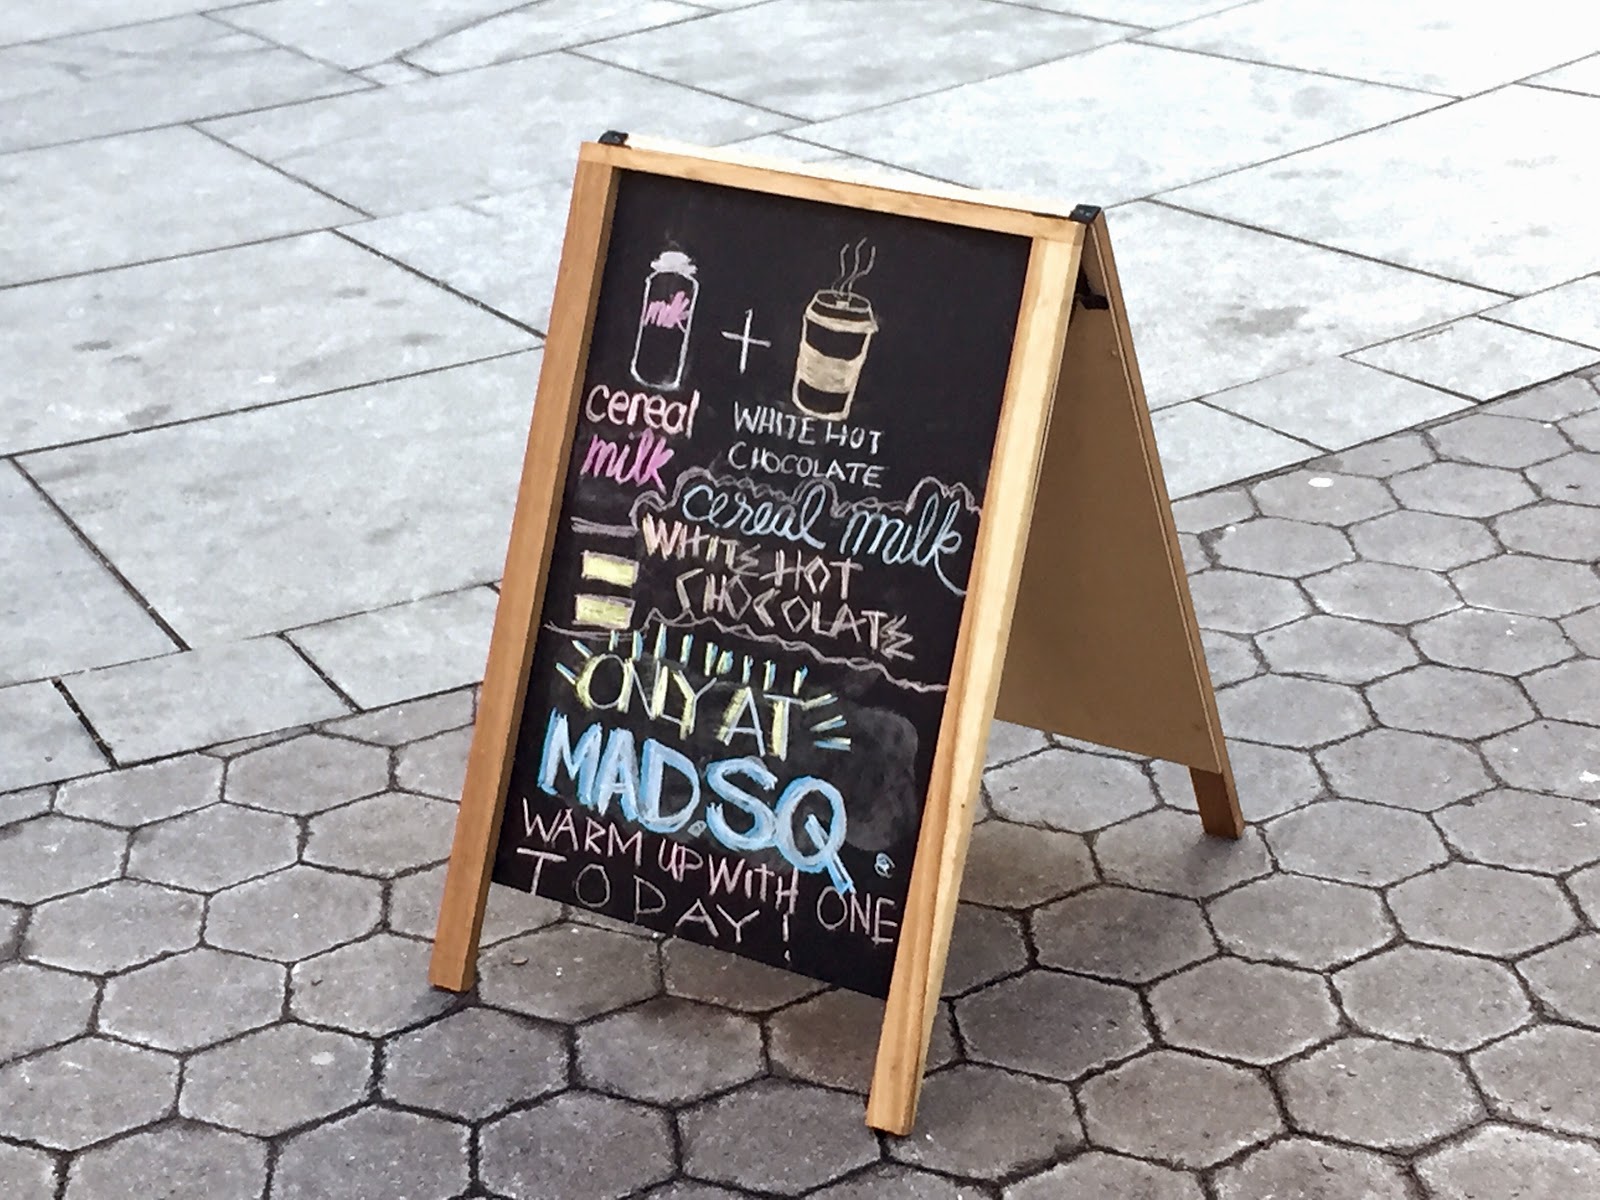 milk
+
cereal
milk
WHITE HOT
CHOCOLATE
=
cereal milk
WHITE HOT
CHOCOLATE
ONLY AT
MAD.SQ.
WARM UP WITH ONE
TODAY!